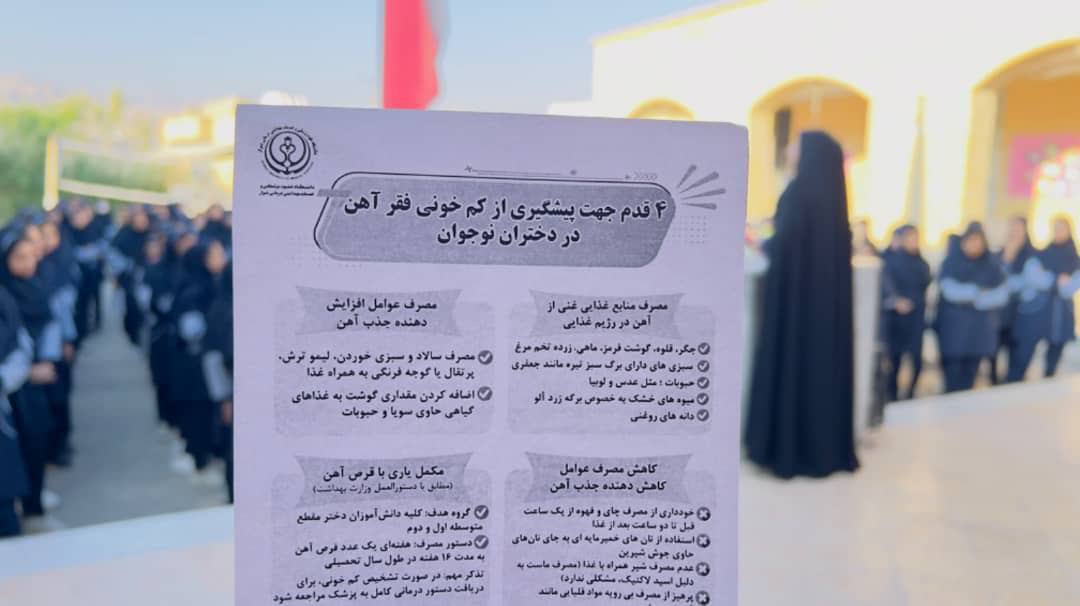 دانشگاه علوم پزشکی و
خدمات بهداشتی درمانی شیراز
۴ قدم جهت پیشگیری از کم خونی فقر آهن
در دختران نوجوان
مصرف منابع غذایی غنی از
آهن در رژیم غذایی
جگر، قلوه، گوشت قرمز، ماهی، زرده تخم مرغ
سبزی های دارای برگ سبز تیره مانند جعفری
حبوبات ؛ مثل عدس و لوبیا
میوه های خشک به خصوص برگه زرد آلو
دانه های روغنی
مصرف عوامل افزایش
دهنده جذب آهن
مصرف سالاد و سبزی خوردن، لیمو ترش،
پرتقال یا گوجه فرنگی به همراه غذا
اضافه کردن مقداری گوشت به غذاهای
گیاهی حاوی سویا و حبوبات
کاهش مصرف عوامل
کاهش دهنده جذب آهن
خودداری از مصرف چای و قهوه از یک ساعت
قبل تا دو ساعت بعد از غذا
استفاده از نان های خمیرمایه ای به جای نان‌های
حاوی جوش شیرین
عدم مصرف شیر همراه با غذا (مصرف ماست به
دلیل اسید لاکتیک، مشکلی ندارد)
پرهیز از مصرف بی رویه مواد قلیایی مانند
مکمل یاری با قرص آهن
(مطابق با دستورالعمل وزارت بهداشت)
گروه هدف: کلیه دانش‌آموزان دختر مقطع
متوسطه اول و دوم
دستور مصرف: هفته‌ای یک عدد قرص آهن
به مدت ۱۶ هفته در طول سال تحصیلی
تذکر مهم: در صورت تشخیص کم خونی، برای
دریافت دستور درمانی کامل به پزشک مراجعه شود